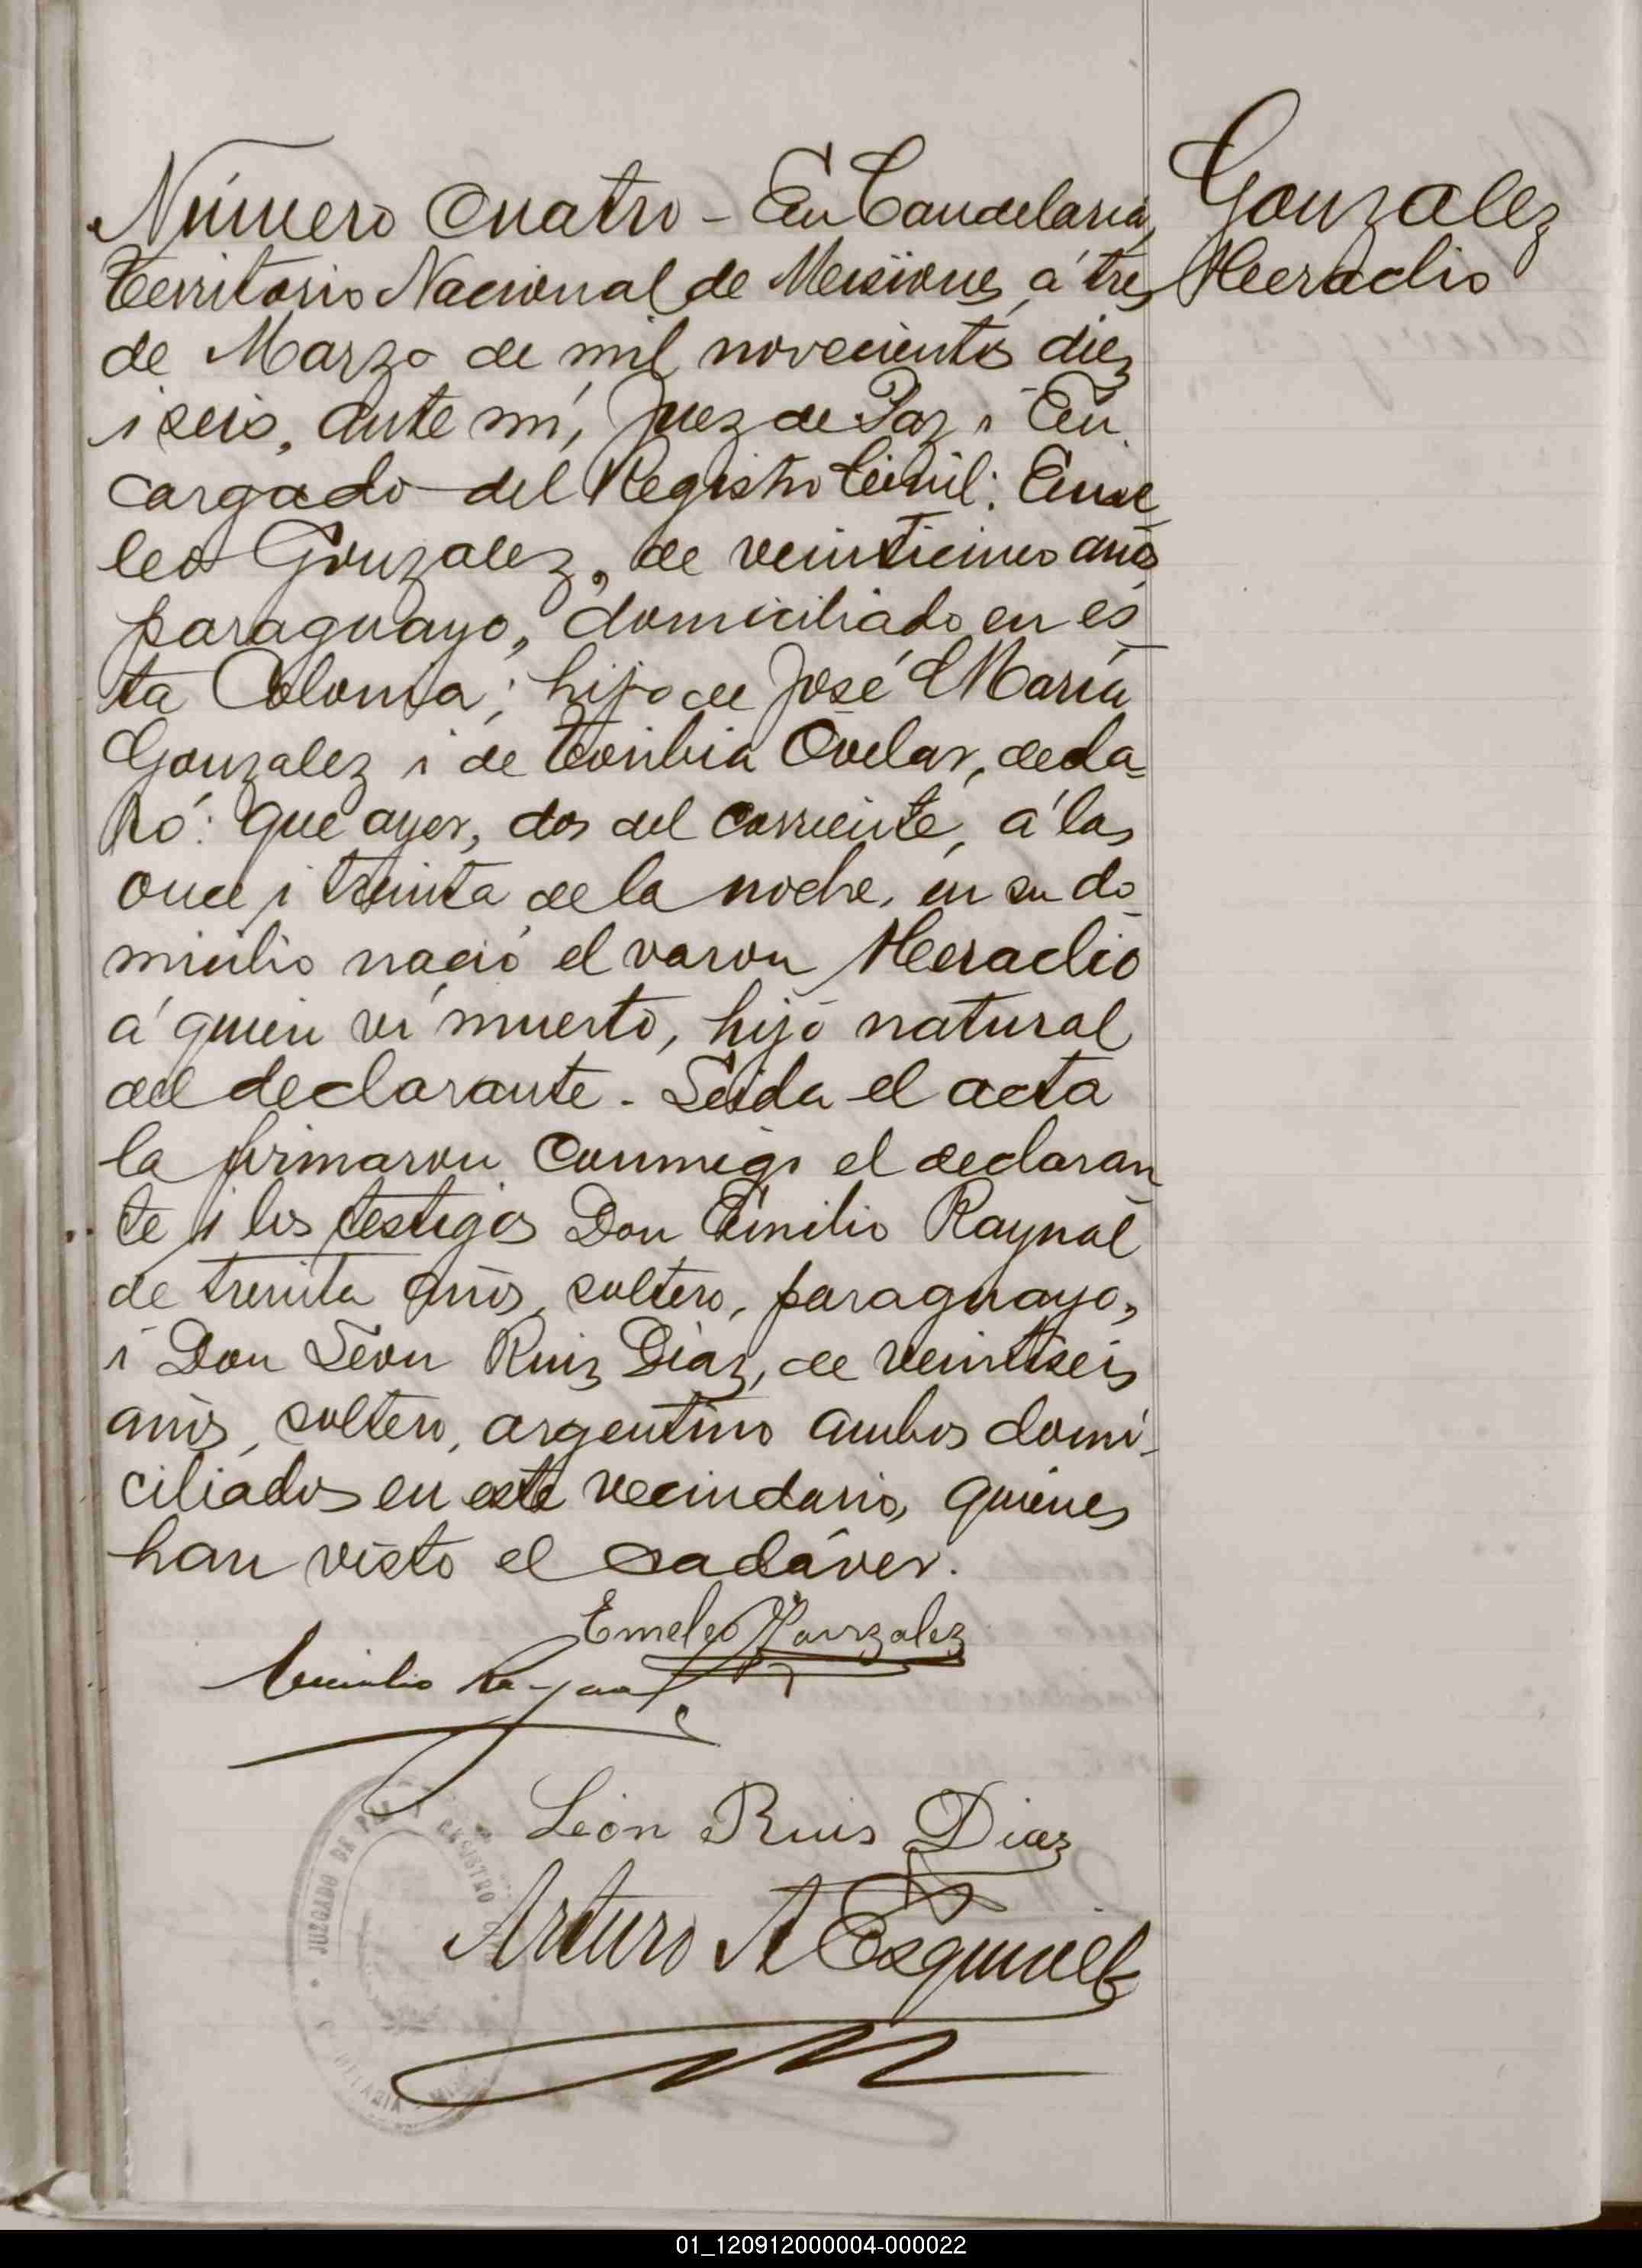 Número Cuatro - En Candelaria,
Territorio Nacional de Misiones, á tres
de Marzo de mil novecientos diez
i seis, ante mí, Juez de Paz i En
cargado del Registro Civil: Eme
leo Gonzalez, de veinticinco años,
paraguayo, domiciliado en es
ta Colonia; hijo de José María
Gonzalez i de Toribia Ovelar, decla
ró: que ayer, dos del corriente, á las
once i treinta de la noche, en su do
micilio nació el varon Heraclio
á quien ví muerto, hijo natural
del declarante. Leída el acta
la firmaron conmigo el declaran
te i los testigos Don Emilio Raynal
de treinta años, soltero, paraguayo,
i Don Leon Ruiz Diaz, de veintiseis
años, soltero, argentino ambos domi-
ciliados en este vecindario, quienes
han visto el cadáver.
Gonzalez
Heraclio
Emeleo Gonzalez
Emilio Raynal
León Ruis Diaz
Arturo A
JUZGADO DE PAZ
REGISTRO
01_120912000004-000022